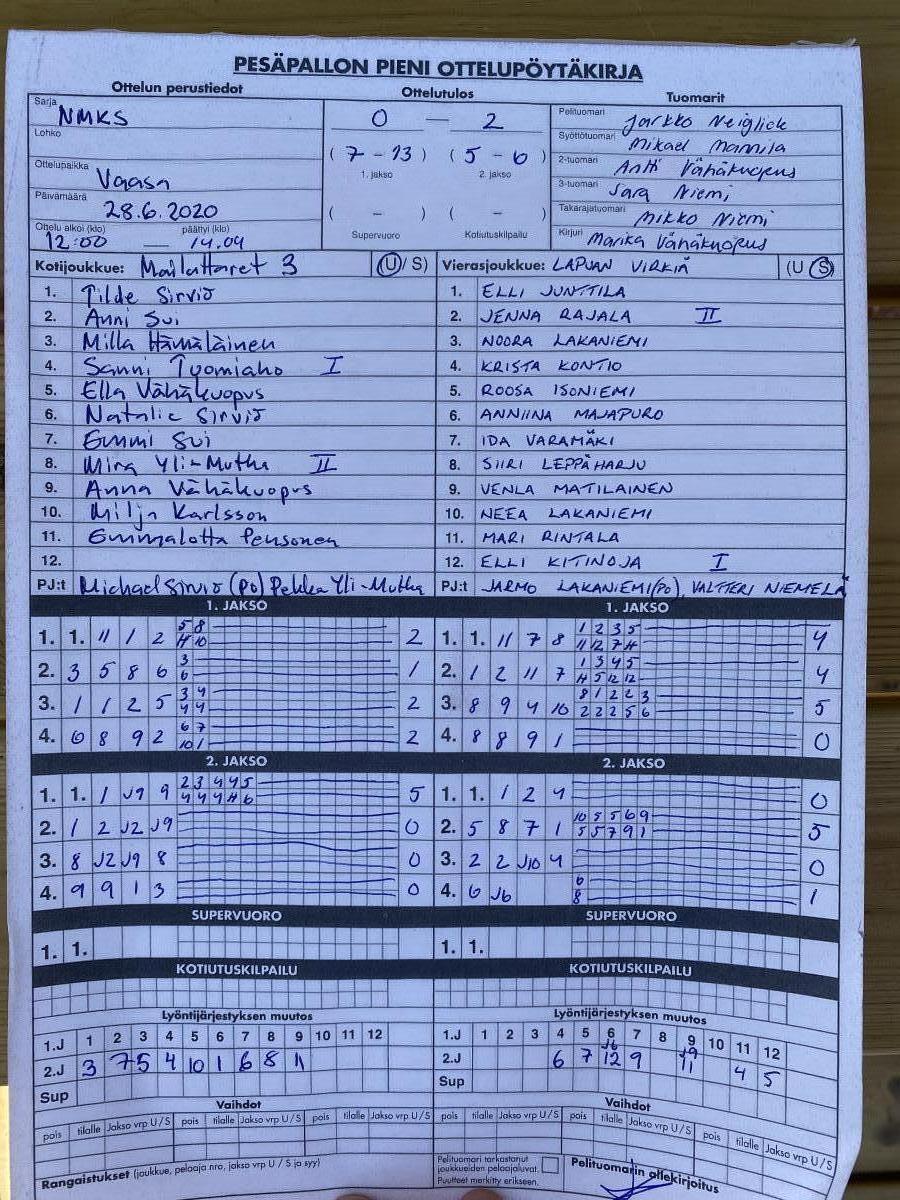 PESÄPALLON PIENI OTTELUPÖYTÄKIRJA
Ottelun perustiedot Ottelutulos Tuomarit
Sarja NMKS
Lohko
Ottelupaikka Vaasa
Päivämäärä 28.6.2020
Ottelu alkoi (klo) päättyi (klo)
12:00 — 14.04
0 — 2
( 7 - 13 ) ( 5 - 6 )
1. jakso 2. jakso
( - ) ( - )
Supervuoro Kotiutuskilpailu
Pelituomari Jarkko Neiglick
Syöttötuomari Mikael Mannila
2-tuomari Antti Vähäkuopus
3-tuomari Sara Niemi
Takarajatuomari Mikko Niemi
Kirjuri Marika Vähäkuopus
Kotijoukkue: Mailattaret 3 (U/ S)
1. Tilde Sirviö
2. Anni Sui
3. Milla Hämäläinen
4. Sanni Tuomiaho I
5. Ella Vähäkuopus
6. Natalie Sirviö
7. Emmi Sui
8. Mira Yli-Mutka II
9. Anna Vähäkuopus
10. Milja Karlsson
11. Emmalotta Pensonen
12.
PJ:t Michael Sirviö (PO) Pekka Yli-Mutka
Vierasjoukkue: LAPUAN VIRKIÄ (U S)
1. ELLI JUNTTILA
2. JENNA RAJALA II
3. NOORA LAKANIEMI
4. KRISTA KONTIO
5. ROOSA ISONIEMI
6. ANNIINA MAJAPURO
7. IDA VARAMÄKI
8. SIIRI LEPPÄHARJU
9. VENLA MATILAINEN
10. NEEA LAKANIEMI
11. MARI RINTALA
12. ELLI KITINOJA I
PJ:t JARMO LAKANIEMI (PO), VALTTERI NIEMELÄ
1. JAKSO
1. 1. 11 1 2 5 8 2
11 10
2. 3 5 8 6 3 1
6
3. 1 1 2 5 3 4 2
4 4
4. 6 8 9 2 6 7 2
10 1
2. JAKSO
1. 1. 1 J9 9 2 3 4 4 5 5
4 4 4 11 6
2. 1 2 J2 J9 0
3. 8 J2 J9 8 0
4. 9 9 1 3 0
SUPERVUORO
1. 1.
KOTIUTUSKILPAILU
Lyöntijärjestyksen muutos
1.J 1 2 3 4 5 6 7 8 9 10 11 12
2.J 3 7 5 4 10 1 6 8 11
Sup
Vaihdot
pois tilalle Jakso vrp U / S pois tilalle Jakso vrp U / S
1. JAKSO
1. 1. 11 7 8 1 2 3 5 4
11 12 7 11
2. 1 2 11 7 1 3 4 5 4
11 5 12 12
3. 8 9 4 10 8 1 2 2 3 5
2 2 2 5 6
4. 8 8 9 1 0
2. JAKSO
1. 1. 1 2 4 0
2. 5 8 7 1 10 5 5 6 9 5
5 5 7 9 1
3. 2 2 J10 4 0
4. 6 J6 6 1
8
SUPERVUORO
1. 1.
KOTIUTUSKILPAILU
Lyöntijärjestyksen muutos
1.J 1 2 3 4 5 6 7 8 9 10 11 12
J6 J9
2.J 6 7 12 9 11 4 5
Sup
Vaihdot
pois tilalle Jakso vrp U / S pois tilalle Jakso vrp U / S
Rangaistukset (joukkue, pelaaja nro, jakso vrp U / S ja syy)
Pelituomari tarkastanut
joukkueiden pelaajaluvat.
Puutteet merkitty erikseen.
Pelituomarin allekirjoitus